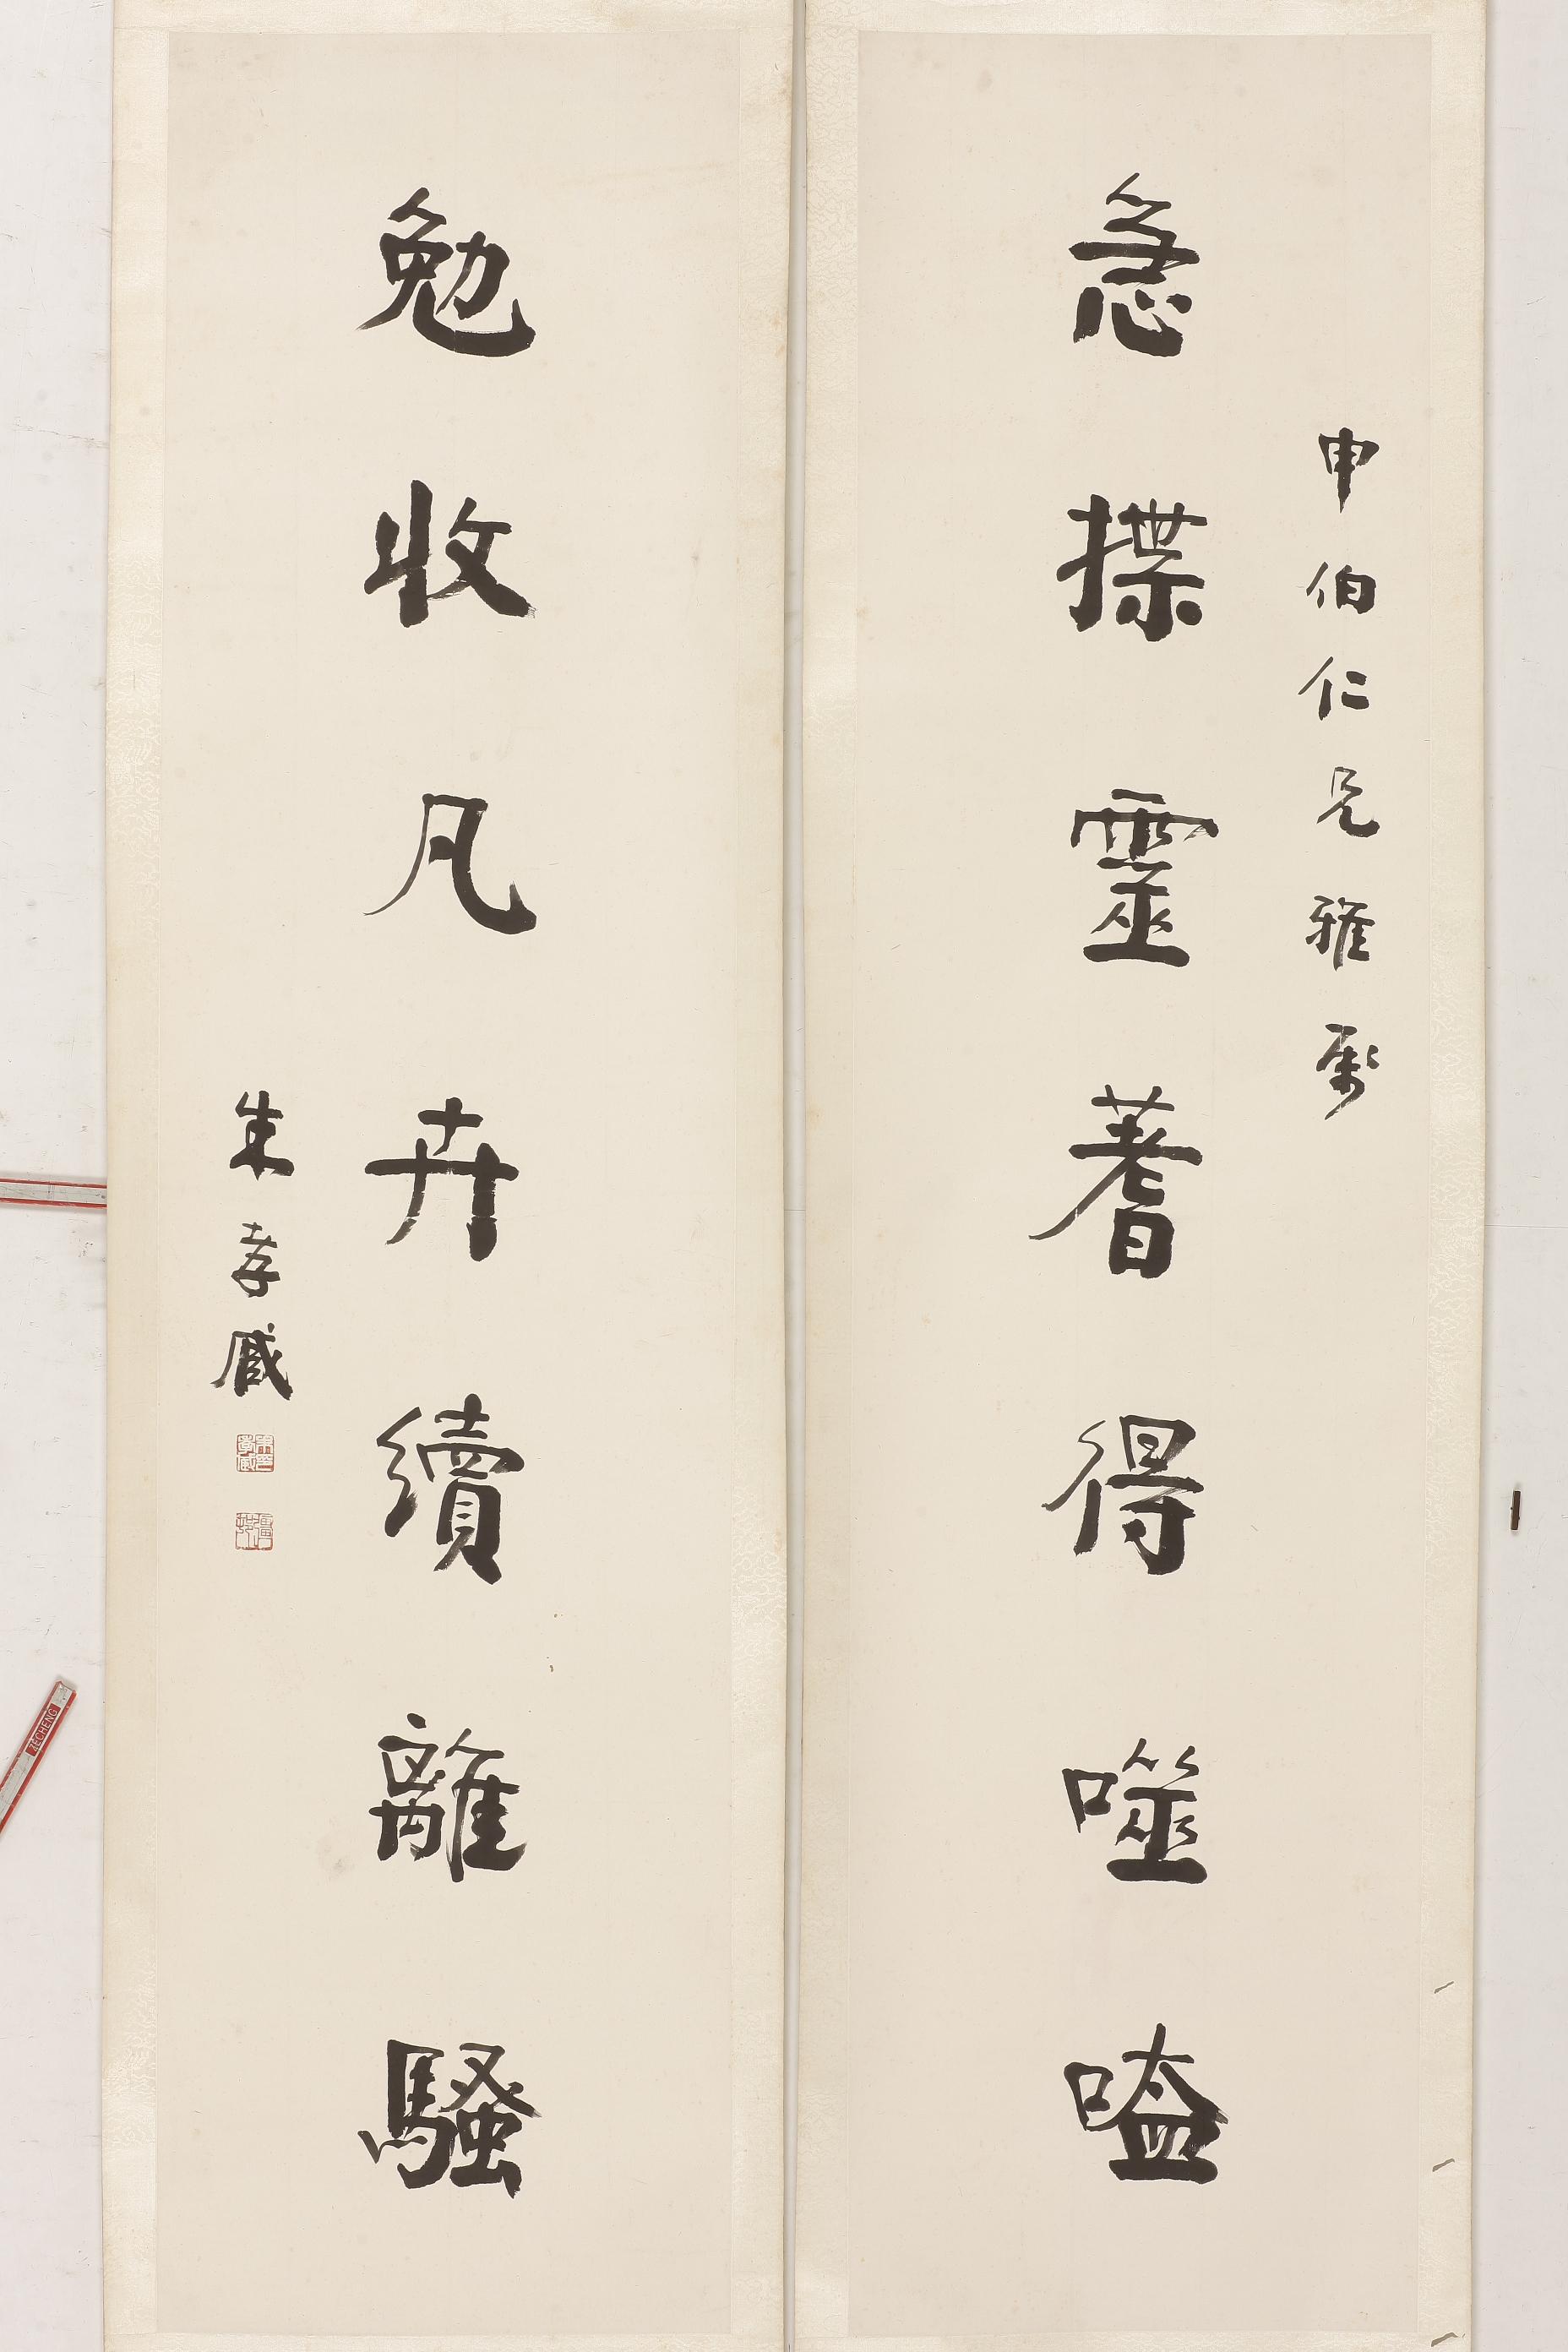 申伯仁兄雅
急揲靈蓍得噬嗑
勉收凡卉續離騷
朱孝臧
ZECHENG